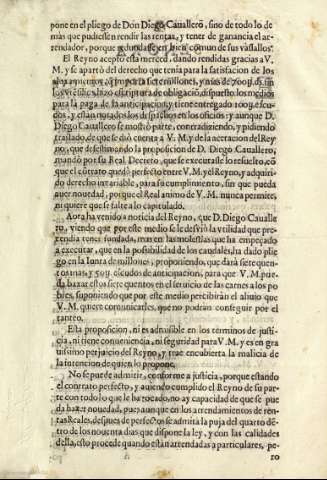 pone en el pliego de Don Diego Cauallero, sino de todo lo de
más que pudiessen rendir las rentas, y tener de ganancia el ar-
rendador, porque redundasse en bien comun de sus vassallos.
El Reyno acepto esta merced, dando rendidas gracias a V.
M. y se apartò del derecho que tenia para la satisfacion de los
setecientos, y mas de
hizo escriptura de obligaciō, dispuso los medios
para la paga de la anticipacion, y tiene entregado escu-
dos, y estan notados los despachos en los oficios: y aunque D.
Diego Cauallero se mostrò parte, contradiziendo, y pidiendo
traslado, de que se diò cuenta a V. M. y de la aceptacion del Rey
no, que desestimando la proposicion de D. Diego Cauallero,
mandò por su Real Decreto, que se executasse lo resuelto, cō
que el cōtrato quedò perfecto entre V. M. y el Reyno, y adquiri-
do derecho inuariable, para su cumplimiento, sin que pueda
auer nouedad, porque el Real animo de V. M. nunca permite,
ni quiere que se falte a lo capitulado.
Aora ha venido a noticia del Reyno, que D. Diego Cavalle
ro, viendo que por este medio se le desvia la vtilidad que pre-
tendia tener fundada, mas en las molestias que ha empeçado
a executar, que en la possibilidad de los caudales, ha dado plie
go en la Iunta de millones, proponiendo, que darà siete quen-
tos mas, y 50y. escudos de anticipacion, para que V. M. pue-
da baxar estos siete quentos en el seruicio de las carnes a los po
bres, suponiendo que por este medio percibiràn el aliuio que
V. M. quiere comunicarles, que no podràn conseguir por el
tanteo.
Esta proposicion, ni es admisible en los terminos de justi-
cia, ni tiene conueniencia, ni seguridad para V. M. y es en gra
uissimo perjuizio del Reyno, y trae encubierta la malicia de
la intencion de quien lo propone.
No se puede admitir, conforme a justicia, porque estando
el contrato perfecto, y auiendo cumplido el Reyno de su par-
te con todo lo que le ha tocado, no ay capacidad de que se pue
da hazer nouedad, pues aunque en los arrendamientos de ren-
tas Reales, despues de perfectos se admita la puja del quarto dē-
tro de los nouenta dias que dispone la ley, y con las calidades
della, esto procede quando estàn arrendadas a particulares, pe-
ro